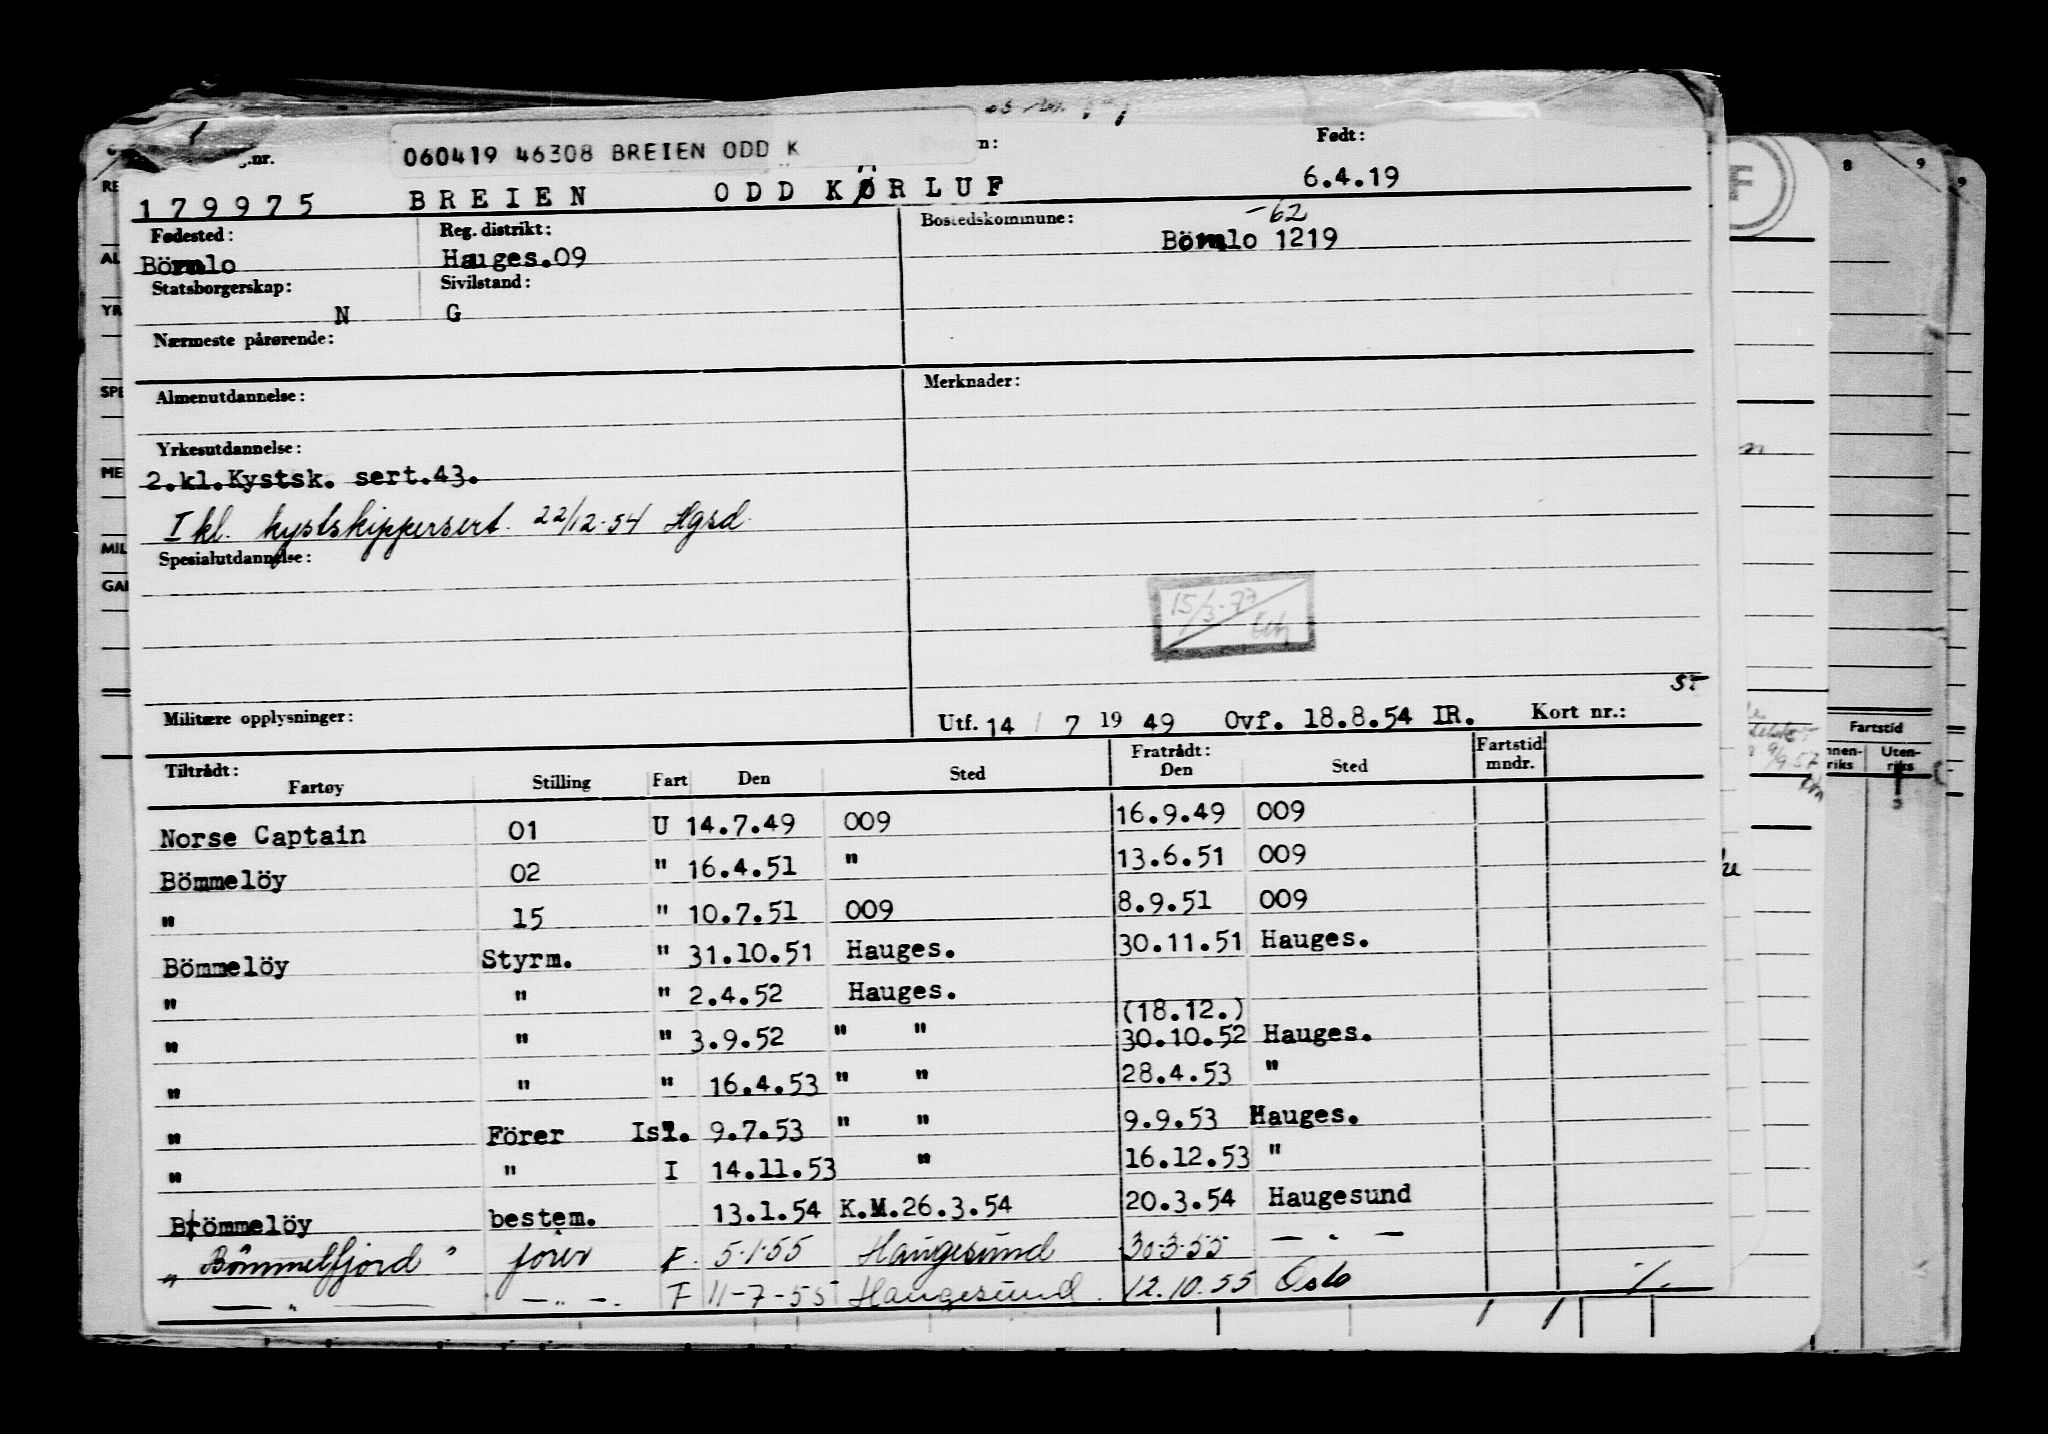 060419 46308 BREIEN ODD K
.nr. n: Født:
179975 BREIEN ODD KØRLUF 6.4.19
Fødested: Reg. distrikt: Bostedskommune: -62
Bömlo Hauges.09 Bömlo 1219
Statsborgerskap: Sivilstand:
N G
Nærmeste pårørende:
Almenutdannelse: Merknader:
Yrkesutdannelse:
2.kl.Kystsk. sert.43.
I kl. kystskippersert. 22/12-54 Hgsd.
Spesialutdannelse:
15/3-77
ST
Militære opplysninger: Utf. 14 / 7 19 49 Ovf. 18.8.54 IR. Kort nr.:
Tiltrådt: Fratrådt: Fartstid mndr.
Fartøy Stilling Fart Den Sted Den Sted
Norse Captain 01 U 14.7.49 009 16.9.49 009
Bömmelöy 02 " 16.4.51 " 13.6.51 009
" 15 " 10.7.51 009 8.9.51 009
Bömmelöy Styrm. " 31.10.51 Hauges. 30.11.51 Hauges.
" " " 2.4.52 Hauges. (18.12.)
" " " 3.9.52 " " 30.10.52 Hauges.
" " " 16.4.53 " " 28.4.53 "
" Förer Isl. 9.7.53 " " 9.9.53 Hauges.
" " I 14.11.53 " 16.12.53 "
Bömmelöy bestem. 13.1.54 K.M.26.3.54 20.3.54 Haugesund
"Bömmelfjord" fører F. 5.1.55 Haugesund 30.3.55 — " —
— " — — " — F 11-7-55 Haugesund. 12.10.55 Oslo
RE
AL
YR
SPE
ME
MIL
GAI
F
8 9
9
Fartstid
nnen-riks Uten-riks
9/9 57